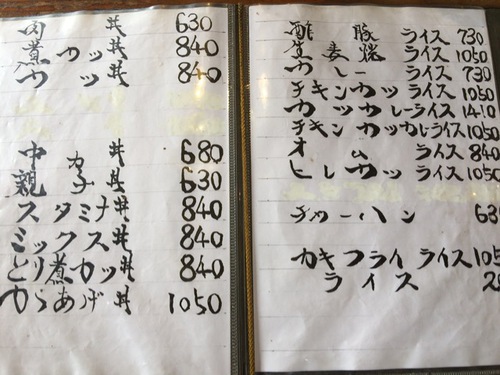 肉丼 630
煮カツ丼 840
カツ丼 840
中カ丼 680
親子丼 630
スタミナ丼 840
ミックス丼 840
とり煮カツ丼 840
からあげ丼 1050
酢豚ライス 730
生姜焼ライス 1050
カレーライス 730
チキンカツライス 1050
カツカレーライス 1410
チキンカツカレーライス 1050
オムライス 840
ヒレカツライス 1050
チャーハン 63
カキフライライス 105
ライス 2